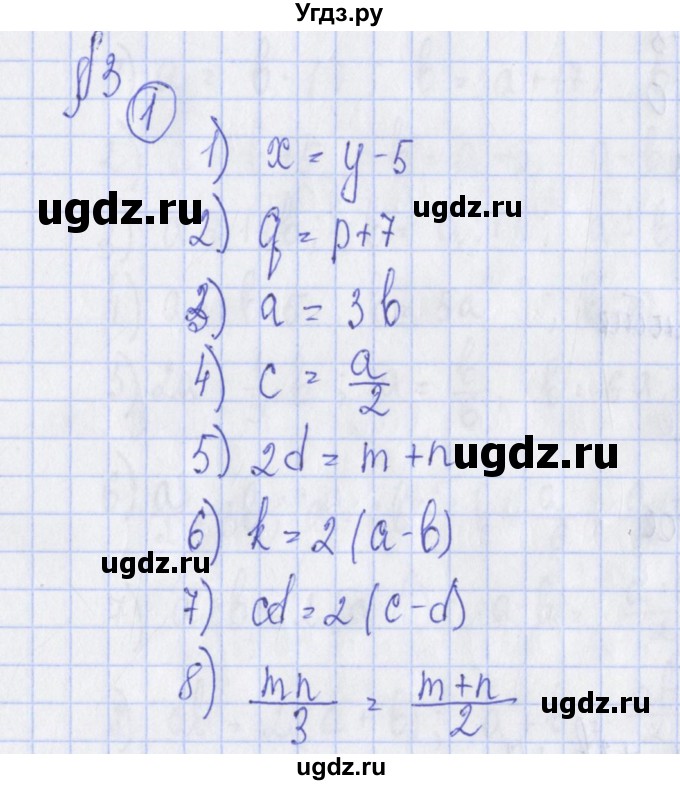 Угдз.ру
§3
1
1) x = y - 5
ugdz.ru
ugdz.ru
2) q = p + 7
3) a = 3b
4) c = a/2
5) 2d = m + n
ugdz.ru
6) k = 2(a - b)
ugdz.ru
7) cd = 2(c - d)
8) mn/3 = m+n/2
ugdz.ru
ugdz.ru